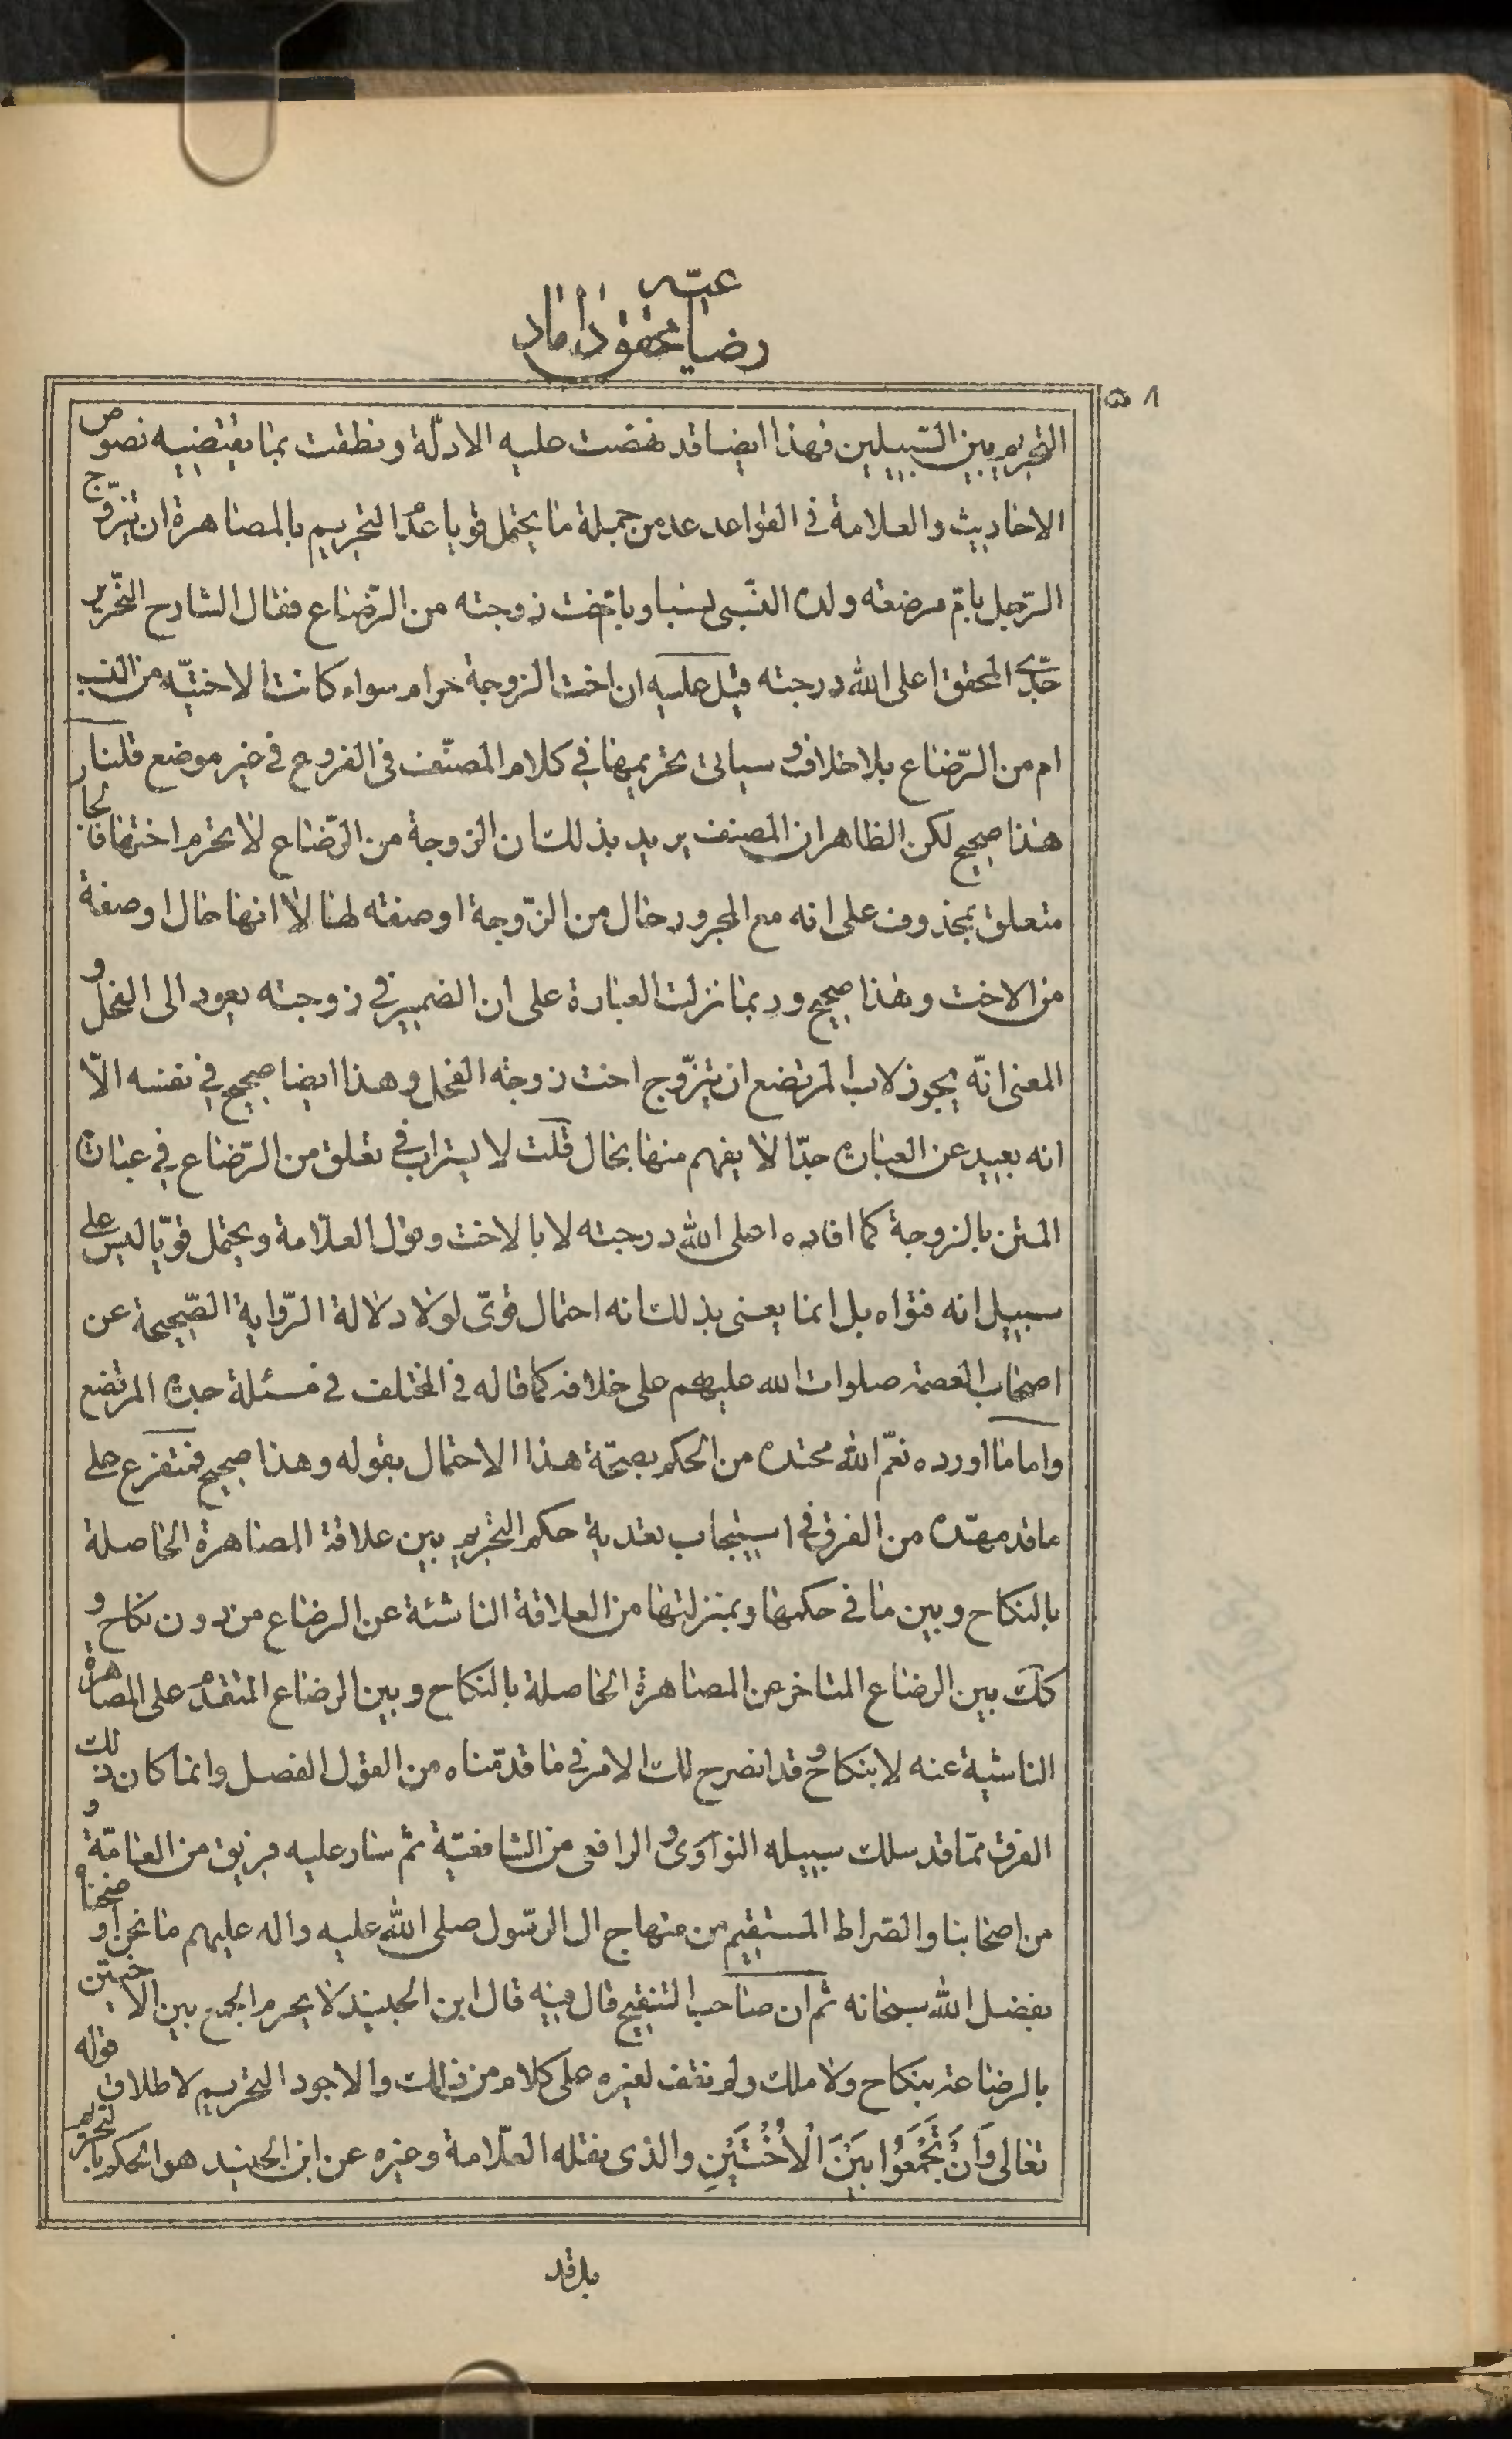 رضاعيّة محقق داماد
٥٨
التحريم بين السّبيلين فهذا ايضا قد نهضت عليه الادلّة ونطقت بما يقتضيه نصوص
الاحاديث والعلامة فى القواعد عد من جملة ما يحتمل قويا عدم التحريم بالمصاهرة ان يتزوّج
الرّجل بامّ مرضعة ولده النّسبى نسبا وباخت زوجته من الرّضاع فقال الشارح النّحرير
جدّى المحقق اعلى الله درجته قيل عليه ان اخت الزوجة حرام سواء كانت الاختيّة من النسب
ام من الرّضاع بلا خلاف وسياتى تحريمها في كلام المصنّف فى الفروع فى غير موضع قلنا
هذا صحيح لكن الظاهر ان المصنف يريد بذلك ان الزوجة من الرّضاع لا يحرم اختها فالجار
متعلق بمحذوف على انه مع المجرور حال من الزّوجة او صفة لها لا انها حال او صفة
من الاخت وهذا صحيح وربما نزلت العبارة على ان الضمير في زوجته يعود الى الفحل و
المعنى انّه يجوز لاب المرتضع ان يتزّوج اخت زوجة الفحل وهذا ايضا صحيح في نفسه الّا
انه بعيد عن العبارة جدّا لا يفهم منها بحال قلت لا يستراب في تعلق من الرّضاع في عبارة
المتن بالزوجة كما افاده اعلى الله درجته لا بالاخت وقول العلّامة ويحتمل قويّا ليس على
سبيل انه فتواه بل انما يعنى بذلك انه احتمال قوىّ لولا دلالة الرّواية الصّحيحة عن
اصحاب العصمة صلوات الله عليهم على خلافه كما قاله فى المختلف فى مسئلة جدة المرتضع
واما ما اورده نعّم الله محتده من الحكم بصحّة هذا الاحتمال بقوله وهذا صحيح فمتفرع على
ما قد مهّده من الفرق في استيجاب تعدية حكم التحريم بين علاقة المصاهرة الحاصلة
بالنكاح وبين ما فى حكمها وبمنزلتها من العلاقة الناشئة عن الرضاع من دون نكاح و
كك بين الرضاع المتاخر عن المصاهرة الحاصلة بالنكاح وبين الرضاع المتقدم على المصاهرة
الناشية عنه لا بنكاح وقد انصرح لك الامر في ما قدّمناه من القول الفصل وانما كان ذلك
الفرق ممّا قد سلك سبيله النواوى والرافعى من الشافعيّة ثم سار عليه فريق من العامّة و
من اصحابنا والصّراط المستقيم من منهاج ال الرّسول صلى الله عليه واله عليهم ما نحن اوضحناه
بفضل الله سبحانه ثم ان صاحب التنقيح قال فيه قال ابن الجنيد لا يحرم الجمع بين الاختين
بالرضاعة بنكاح ولا ملك ولم نقف لغيره على كلام من ذلك والاجود التحريم لاطلاق قوله
تعالى وَأَنْ تَجْمَعُوا بَيْنَ الْأُخْتَيْنِ والذى نقله العلّامة وغيره عن ابن الجنيد هو الحكم بالتحريم
بل قد